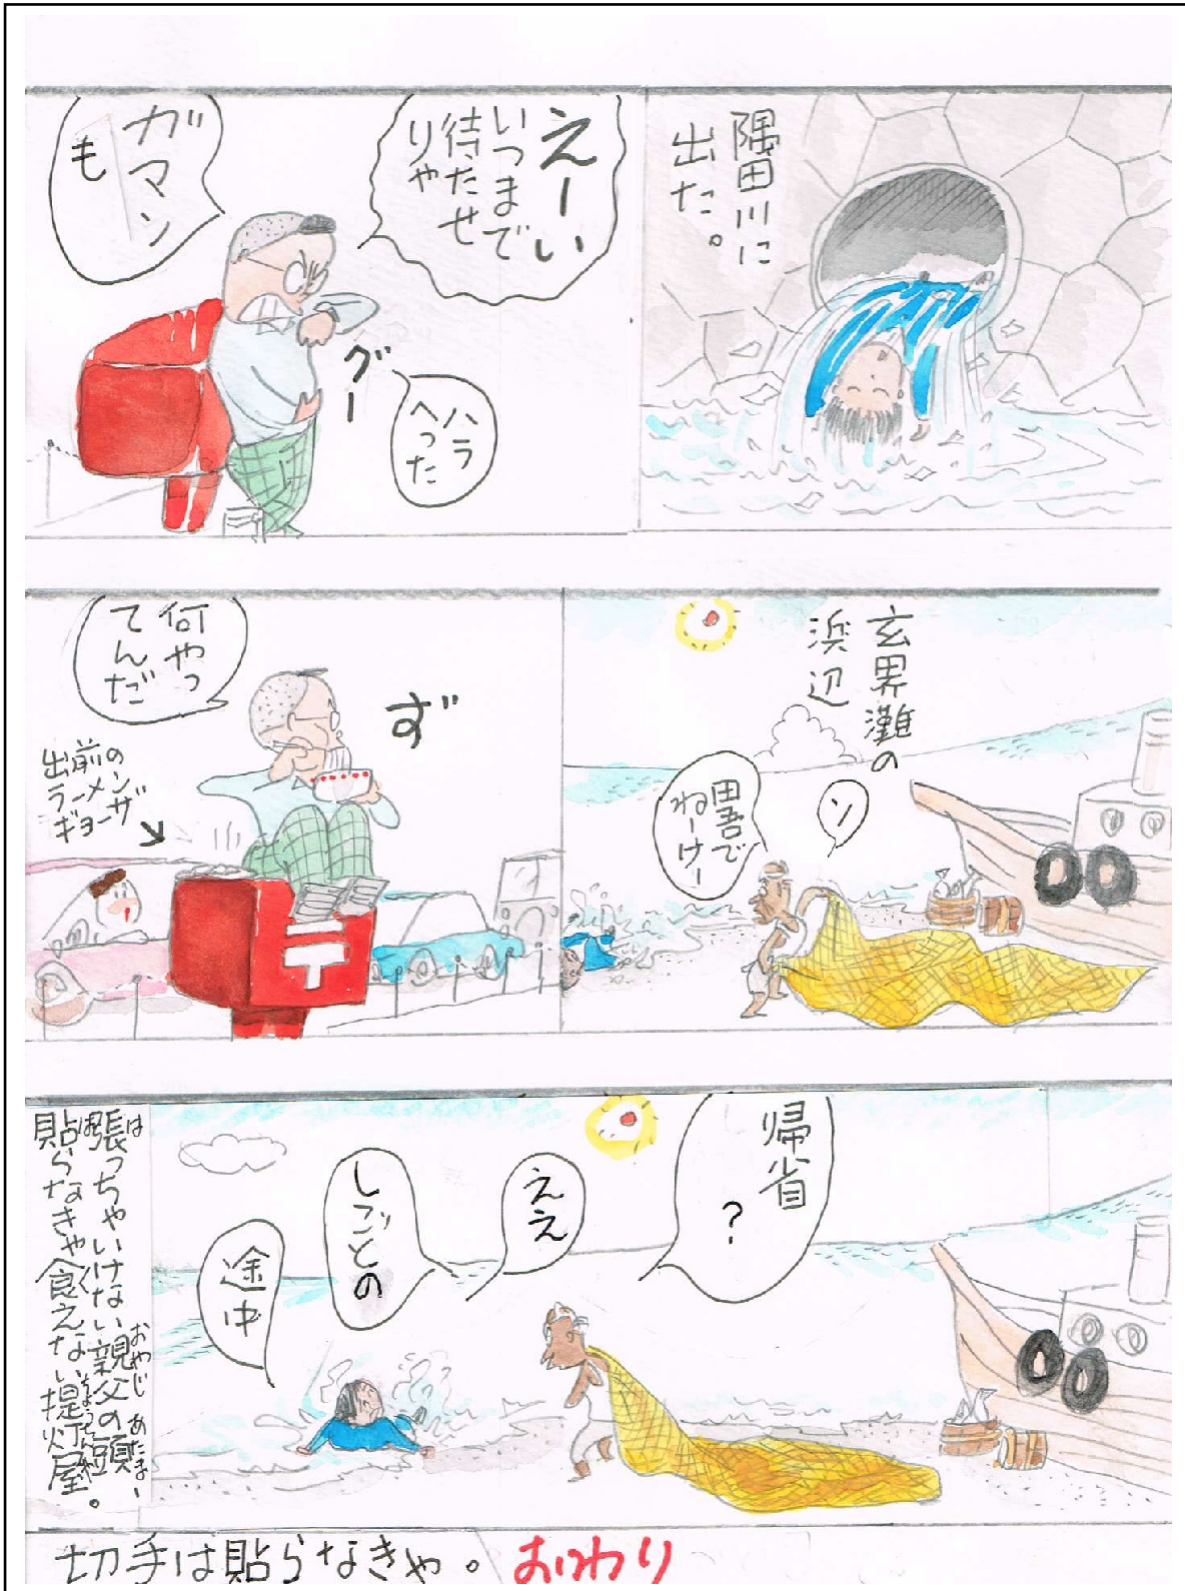 隅田川に
出た。
えーい
いつまで
待たせ
りゃ
グー
ハラ
へった
ガマン
も
玄界灘の
浜辺
ン
田吾で
ねーけー
ず
何やっ
てんだ
出前の
ラーメン
ギョーザ
帰省
?
ええ
しごとの
途中
張っちゃいけない親父の頭、
貼らなきゃ食えない提灯屋。
切手は貼らなきゃ。おわり